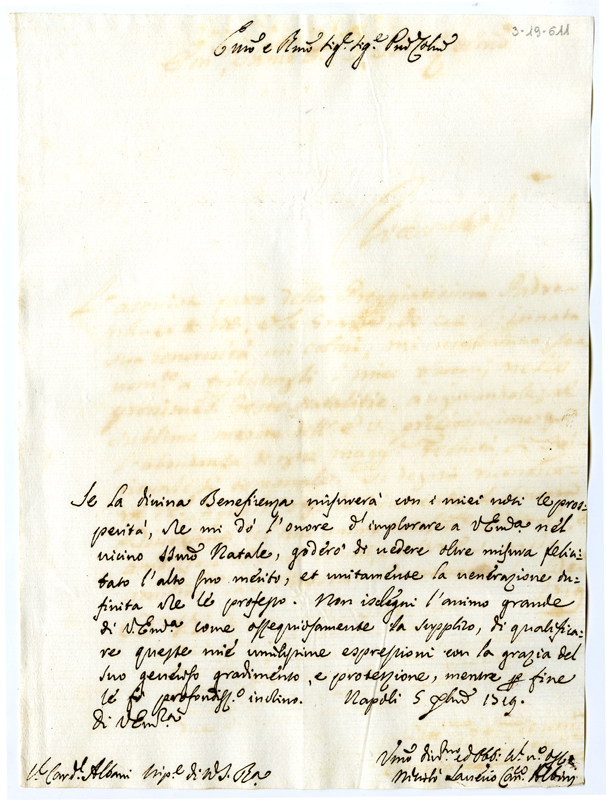 3-19-611
Emo e Rmo Sigr. Sigr. Pne Colmo
Se la divina Beneficenza misurerà con i miei voti le pros-
perità, che mi dò l'onore d'implorare a V. Emza nel
vicino SSmo Natale, goderò di vedere oltre misura felici-
tato l'alto suo merito, et unitamente la venerazione in-
finita che le professo. Non isdegni l'animo grande
di V. Emza come ossequiosamente la supplico, di qualifica-
re queste mie umilissime espressioni con la grazia del
suo generoso gradimento, e protezione, mentre per fine
le fò profondiss.o inchino. Napoli 5 Xbre 1719.
di V. Emza
Card. Albani
Umo divmo ed Obbl